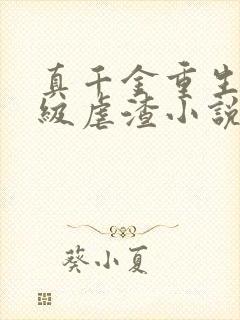 真千金重生
级虐渣小説
葵小夏